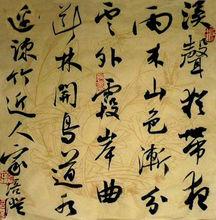 溪聲猶帶夜
雨山色漸分
雲外霞岸曲
林開鳥道水
邊疎竹近人家